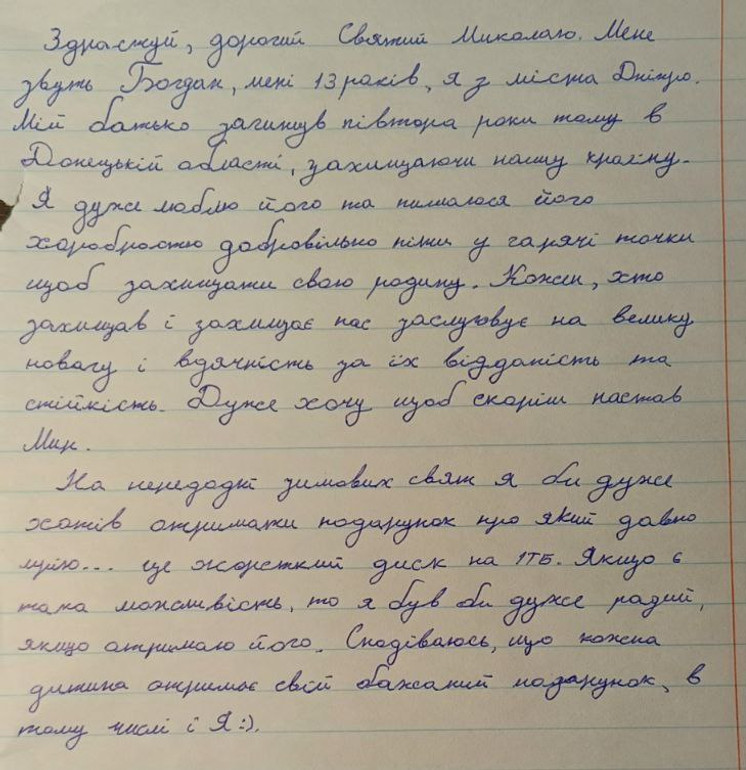 Здрастуй, дорогий Святий Миколаю. Мене
звуть Богдан, мені 13 років, я з міста Дніпро.
Мій батько загинув півтора роки тому в
Донецькій області, захищаючи нашу країну.
Я дуже люблю його та пишаюся його
хоробростю добровільно піти у гарячі точки
щоб захищати свою родину. Кожен, хто
захищав і захищає нас заслуговує на велику
повагу і вдячність за їх відданість та
стійкість. Дуже хочу щоб скоріш настав
Мир.
На передодні зимових свят я би дуже
хотів отримати подарунок про який давно
мрію... це жорсткий диск на 1ТБ. Якщо є
така можливість, то я був би дуже радий,
якщо отримаю його. Сподіваюсь, що кожна
дитина отримає свій бажаний подарунок, в
тому числі і Я :).